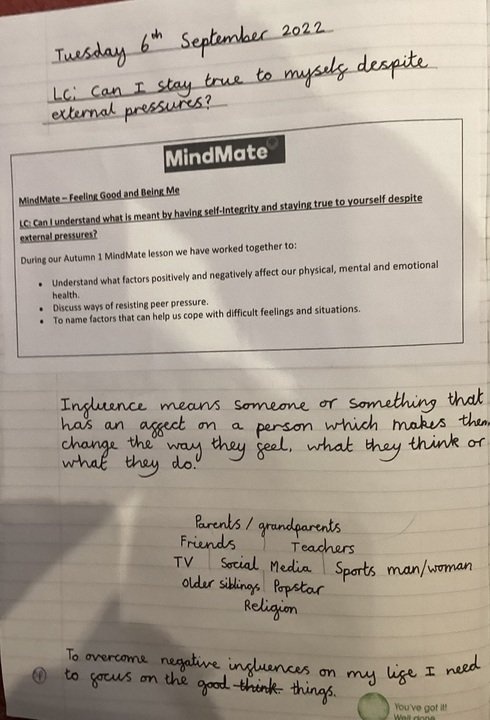 Tuesday 6th September 2022
LC: Can I stay true to myself despite
external pressures?
MindMate
MindMate – Feeling Good and Being Me
LC: Can I understand what is meant by having self-integrity and staying true to yourself despite
external pressures?
During our Autumn 1 MindMate lesson we have worked together to:
• Understand what factors positively and negatively affect our physical, mental and emotional
health.
• Discuss ways of resisting peer pressure.
• To name factors that can help us cope with difficult feelings and situations.
Influence means someone or something that
has an affect on a person which makes them
change the way they feel, what they think or
what they do.
Parents / grandparents
Friends | Teachers
TV | Social Media | Sports man/woman
older siblings | Popstar
Religion
To overcome negative influences on my life I need
to focus on the good think things.
You've got it!
Well done